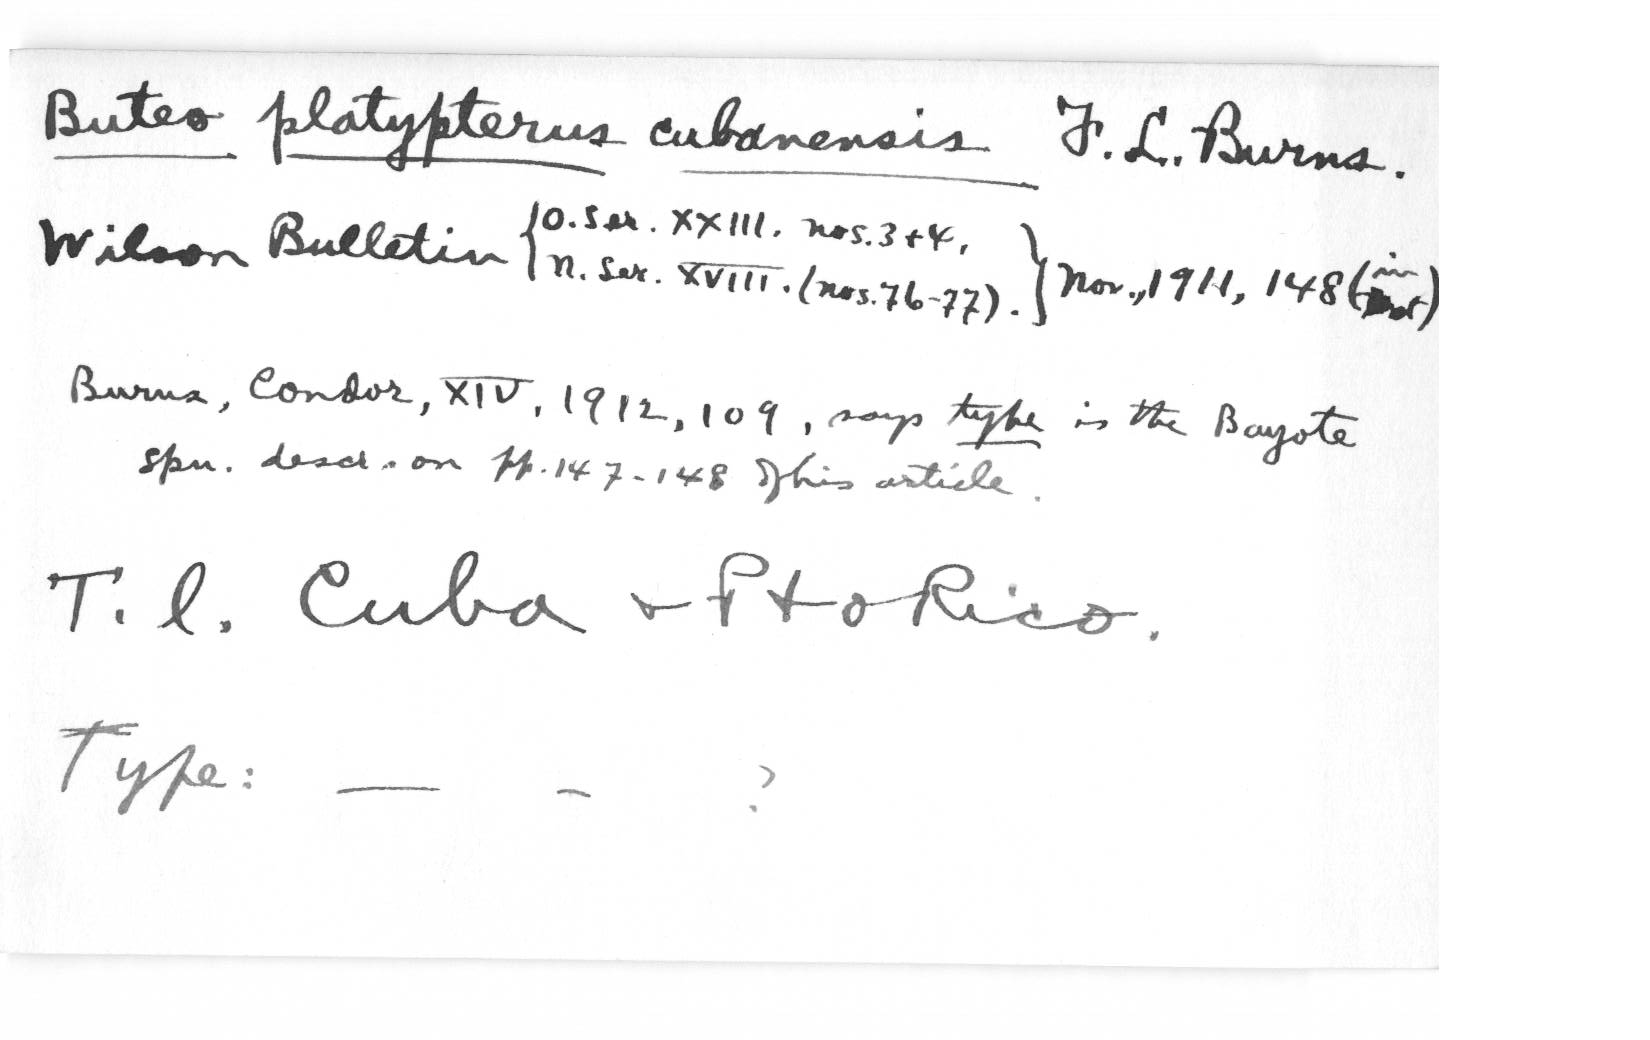 Buteo platypterus cubanensis F. L. Burns.
Wilson Bulletin { O. Ser. XXIII. nos. 3 + 4,
n. Ser. XVIII. (nos. 76-77). } Nov., 1911, 148 (in
Burns, Condor, XIV, 1912, 109, says type is the Bayote
spn. descr. on pp. 147-148 of his article.
T. l. Cuba + Pto Rico.
Type: — - ?